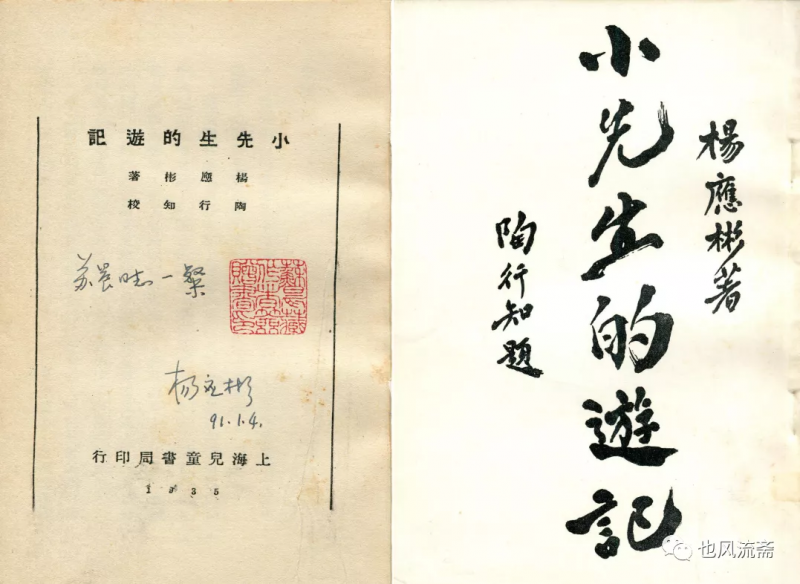 小先生的遊記
楊應彬著
陶行知校
苏晨同志一粲
杨应彬
91.1.4.
上海兒童書局印行
1935
楊應彬著
小先生的遊記
陶行知題
也风流斋